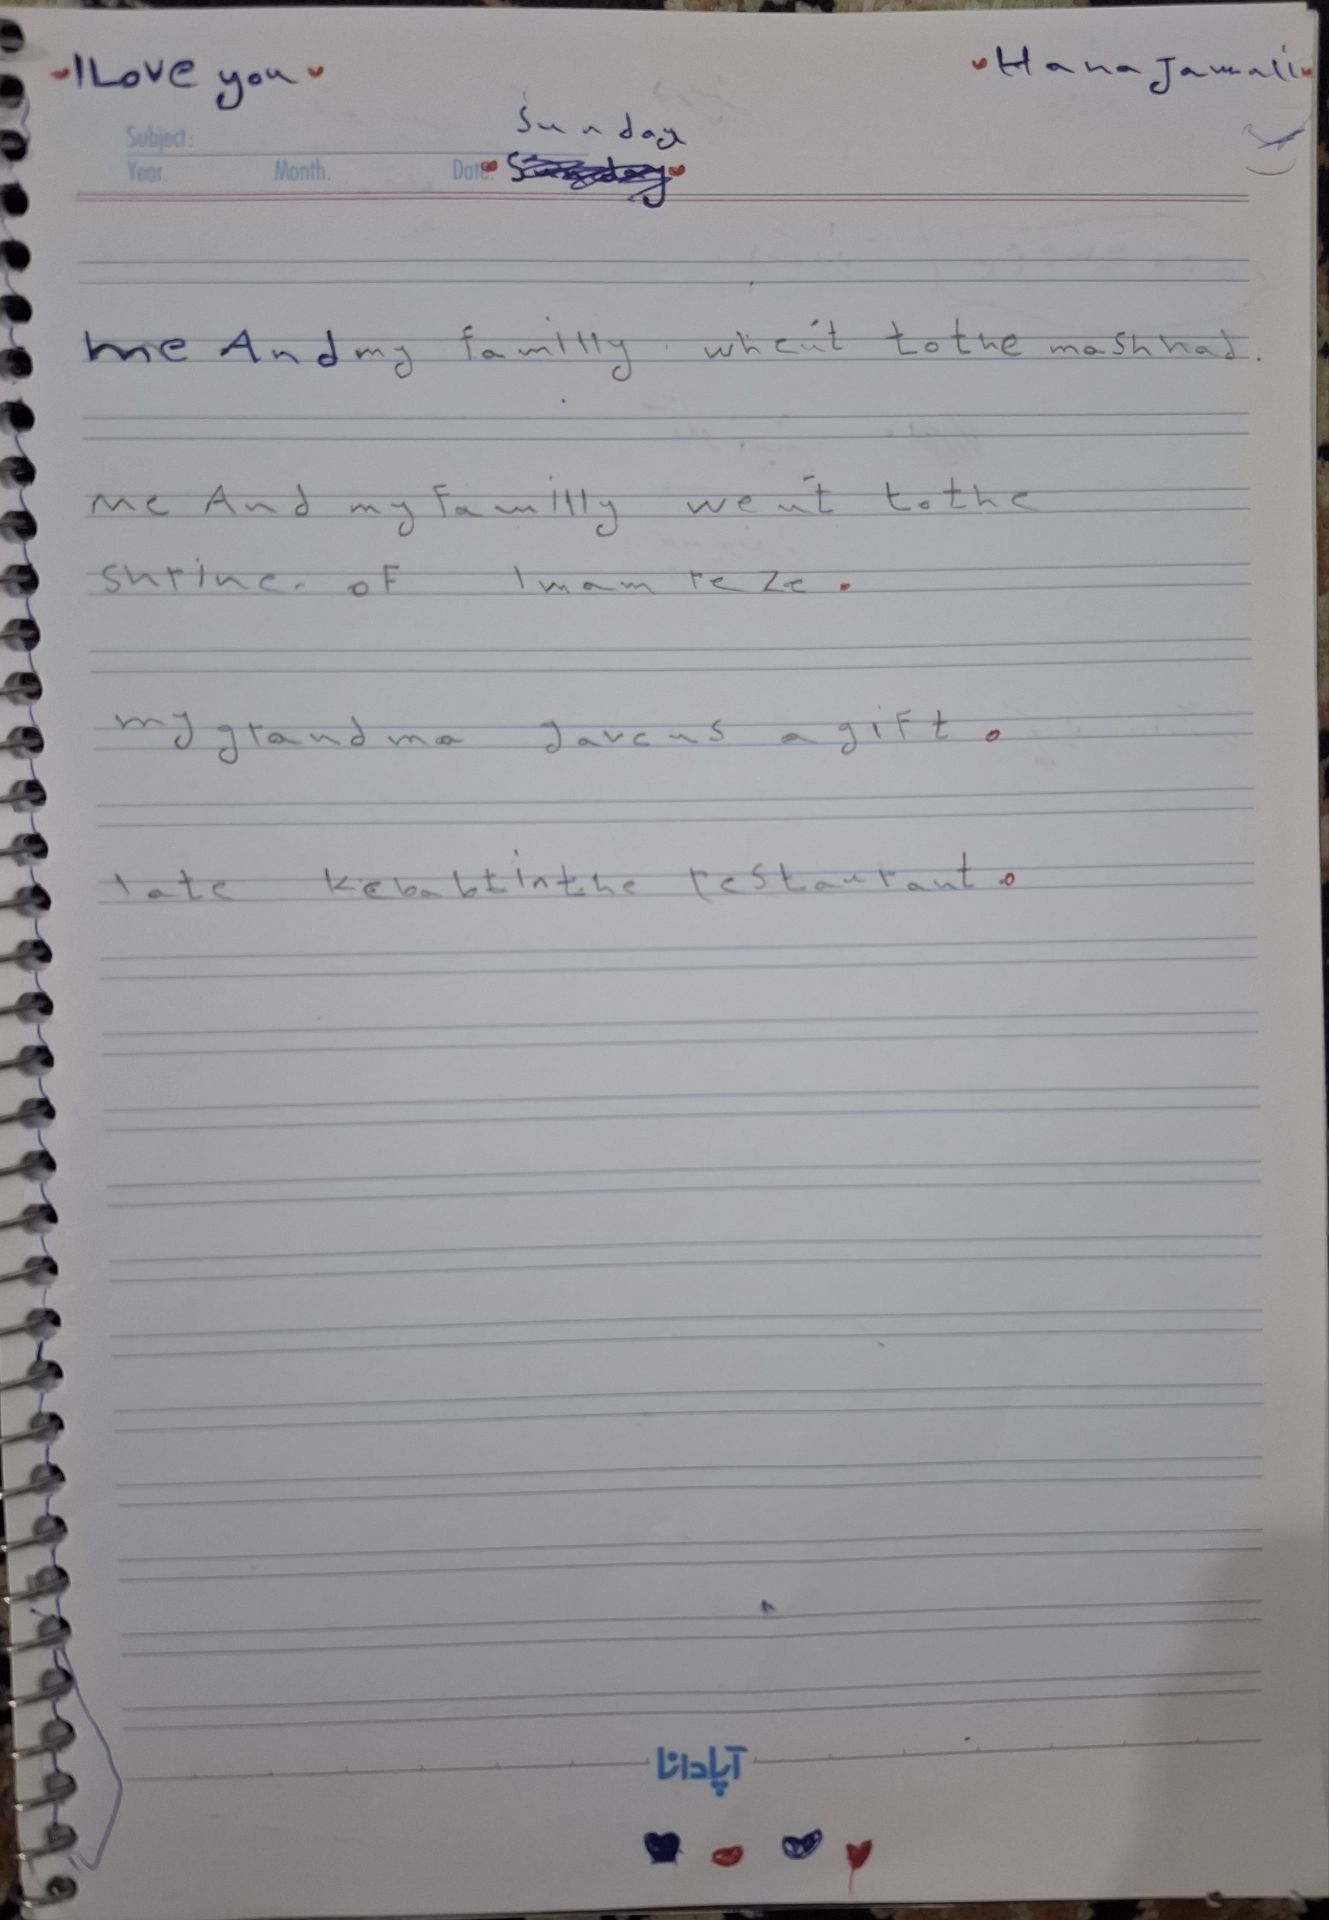 I Love you
Hana Jamali
Subject:
Sunday
Year. Month. Date:
me And my familly whent to the mashhad.
me And my familly went to the
shrine. of Imam reze.
my grandma gave us a gift.
I ate kebabt in the restaurant.
آپادانا